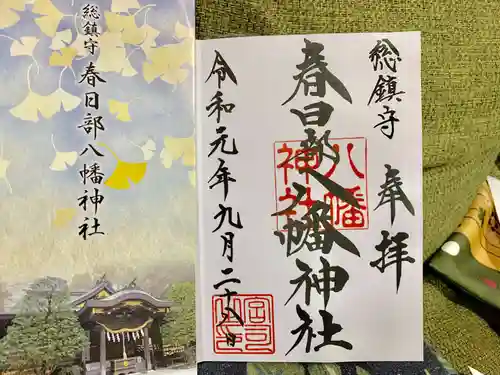 総鎮守 春日部八幡神社
総鎮守
奉拝
春日部八幡神社
八幡
神社
令和元年九月二十八日